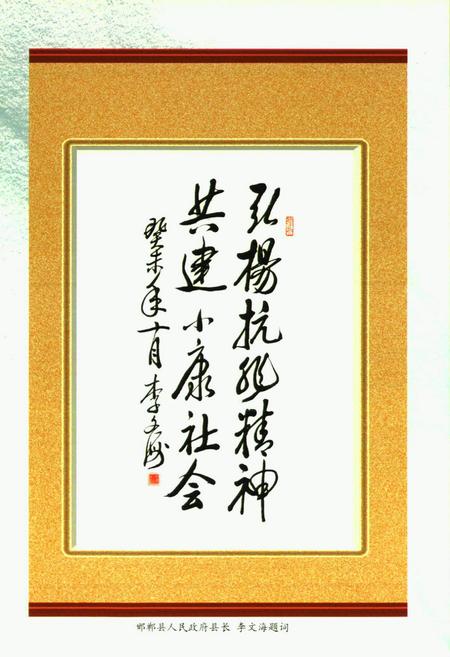 弘楊抗非精神
共建小康社会
癸未年十月 李文海
邯郸县人民政府县长 李文海题词